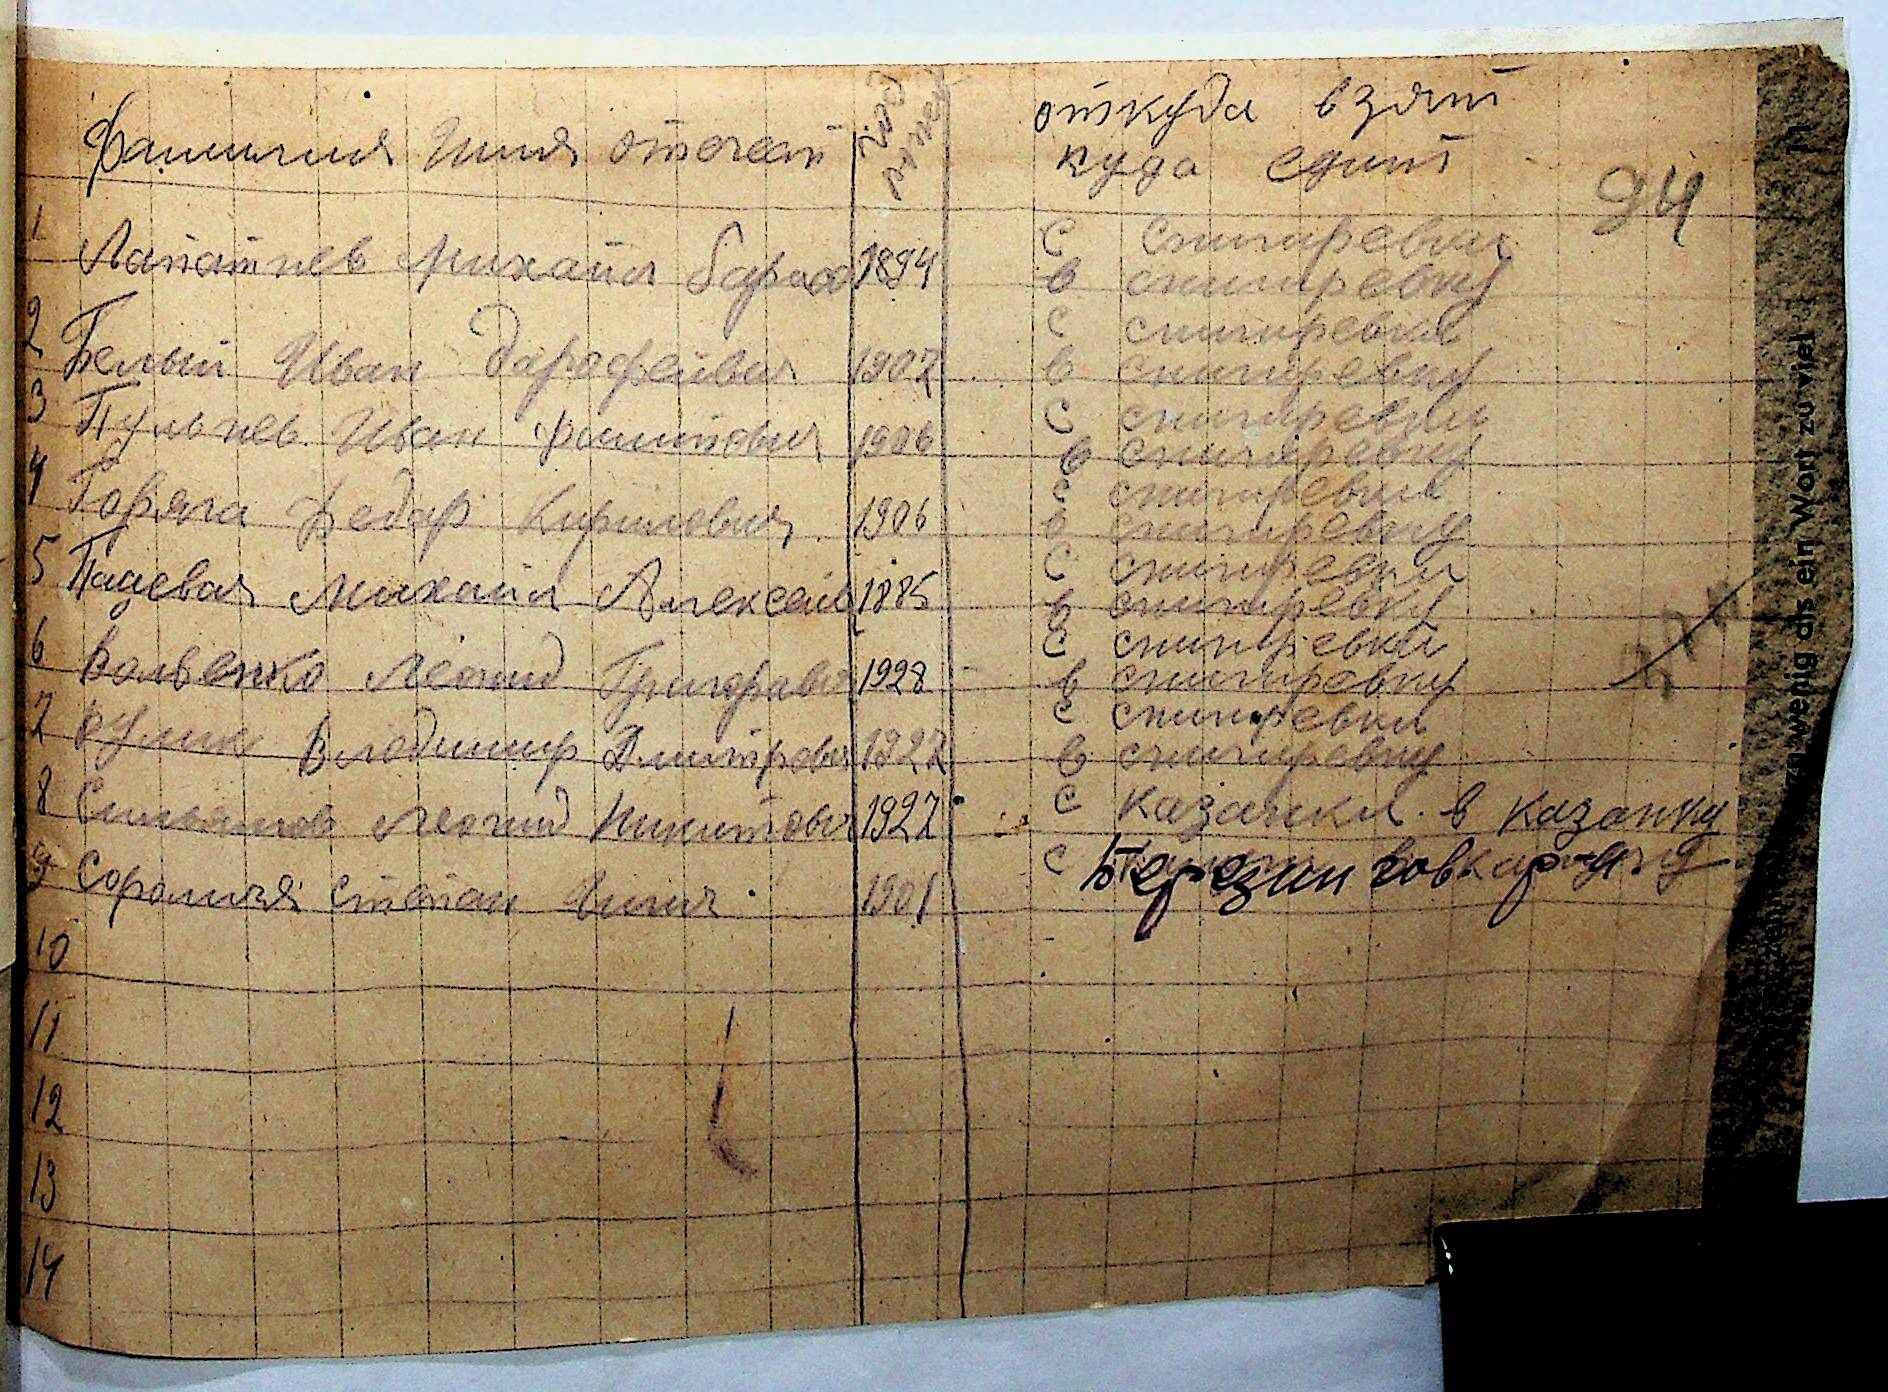 Фамилия Имя отечест год рожден откуда взят
куда едит
94
1 Лапатнев Михаил Барис 1894 с снигиревки
в снигиревку
2 Белый Иван Дарофеивич 1907 с снигиревки
в снигиревку
3 Пульнев Иван Филипович 1906 с снигиревки
в снигиревку
4 Горяга Федар Кирилович 1906 с снигиревки
в снигиревку
5 Пацевая Михаил Алексеив 1885 с снигиревки
в снигиревку
6 Вальвенко Леонид Григоравич 1928 с снигиревки
в снигиревку
7 Владимир Дмитрович 1927 с снигиревки
в снигиревку
8 Леонид Никитович 1927 с казанки в казанку
9 Степан 1901 с Березниговка
10
11
12
13
14
zu wenig als ein Wort zu viel